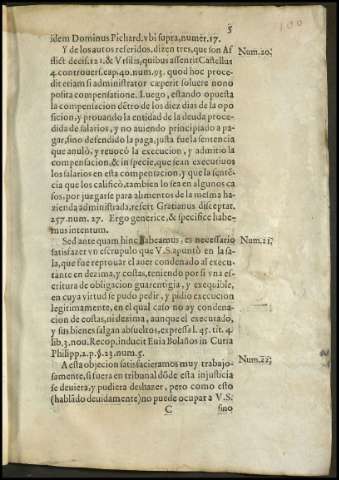 5
100
idem Dominus Pichard. vbi supra, numer. 17.
Y de los autos referidos. dizen tres, que son Af
flict decis. 121. & Vrsilis, quibus assentit Castellus
4. controuers. cap. 40. num. 93. quod hoc proce-
dit etiam si administrator cæperit soluere non o
posita compensatione. Luego, estando opuesta
la compensacion dẽtro de los diez dias de la opo
sicion, y prouando la entidad de la deuda proce
dida de salarios, y no auiendo principiado a pa-
gar, sino defendido la paga, justa fue la sentencia
que anulò, y reuocò la execucion, y admitio la
compensacion, & in specie, que sean executiuos
los salarios en esta compensacion, y que la sentẽ-
cia que los calificò, tambien lo sea en algunos ca
sos, por juzgarse para alimentos de la mesma ha-
zienda administrada, refert Gratianus disceptat.
257. num. 27. Ergo generice, & specifice habe-
mus intentum.
Num. 20.
Sed ante quam hinc habeamus, es necessario
satisfazer vn escrupulo que V.S. apuntò en la sa-
la, que fue reprouar el auer condenado al execu-
tante en dezima, y costas, teniendo por si vna es-
critura de obligacion guarentigia, y exequible,
en cuya virtud se pudo pedir, y pidio execucion
legitimamente, en el qual caso no ay conde-
nacion de costas, ni dezima, aunque el executado,
y sus bienes salgan absueltos, expressa l. 45. tit. 4.
lib. 3. nou. Recop. inducit Euia Bolaños in Curia
Philipp. 2. p. §. 23. num. 5.
Num. 21.
A esta objecion satisfacieramos muy trabajo-
samente, si fuera en tribunal dõde esta injusticia
se deuiera, y pudiera deshazer, pero como esto
(hablãdo deuidamente) no puede ocupar a V.S.
Num. 22.
C
sino